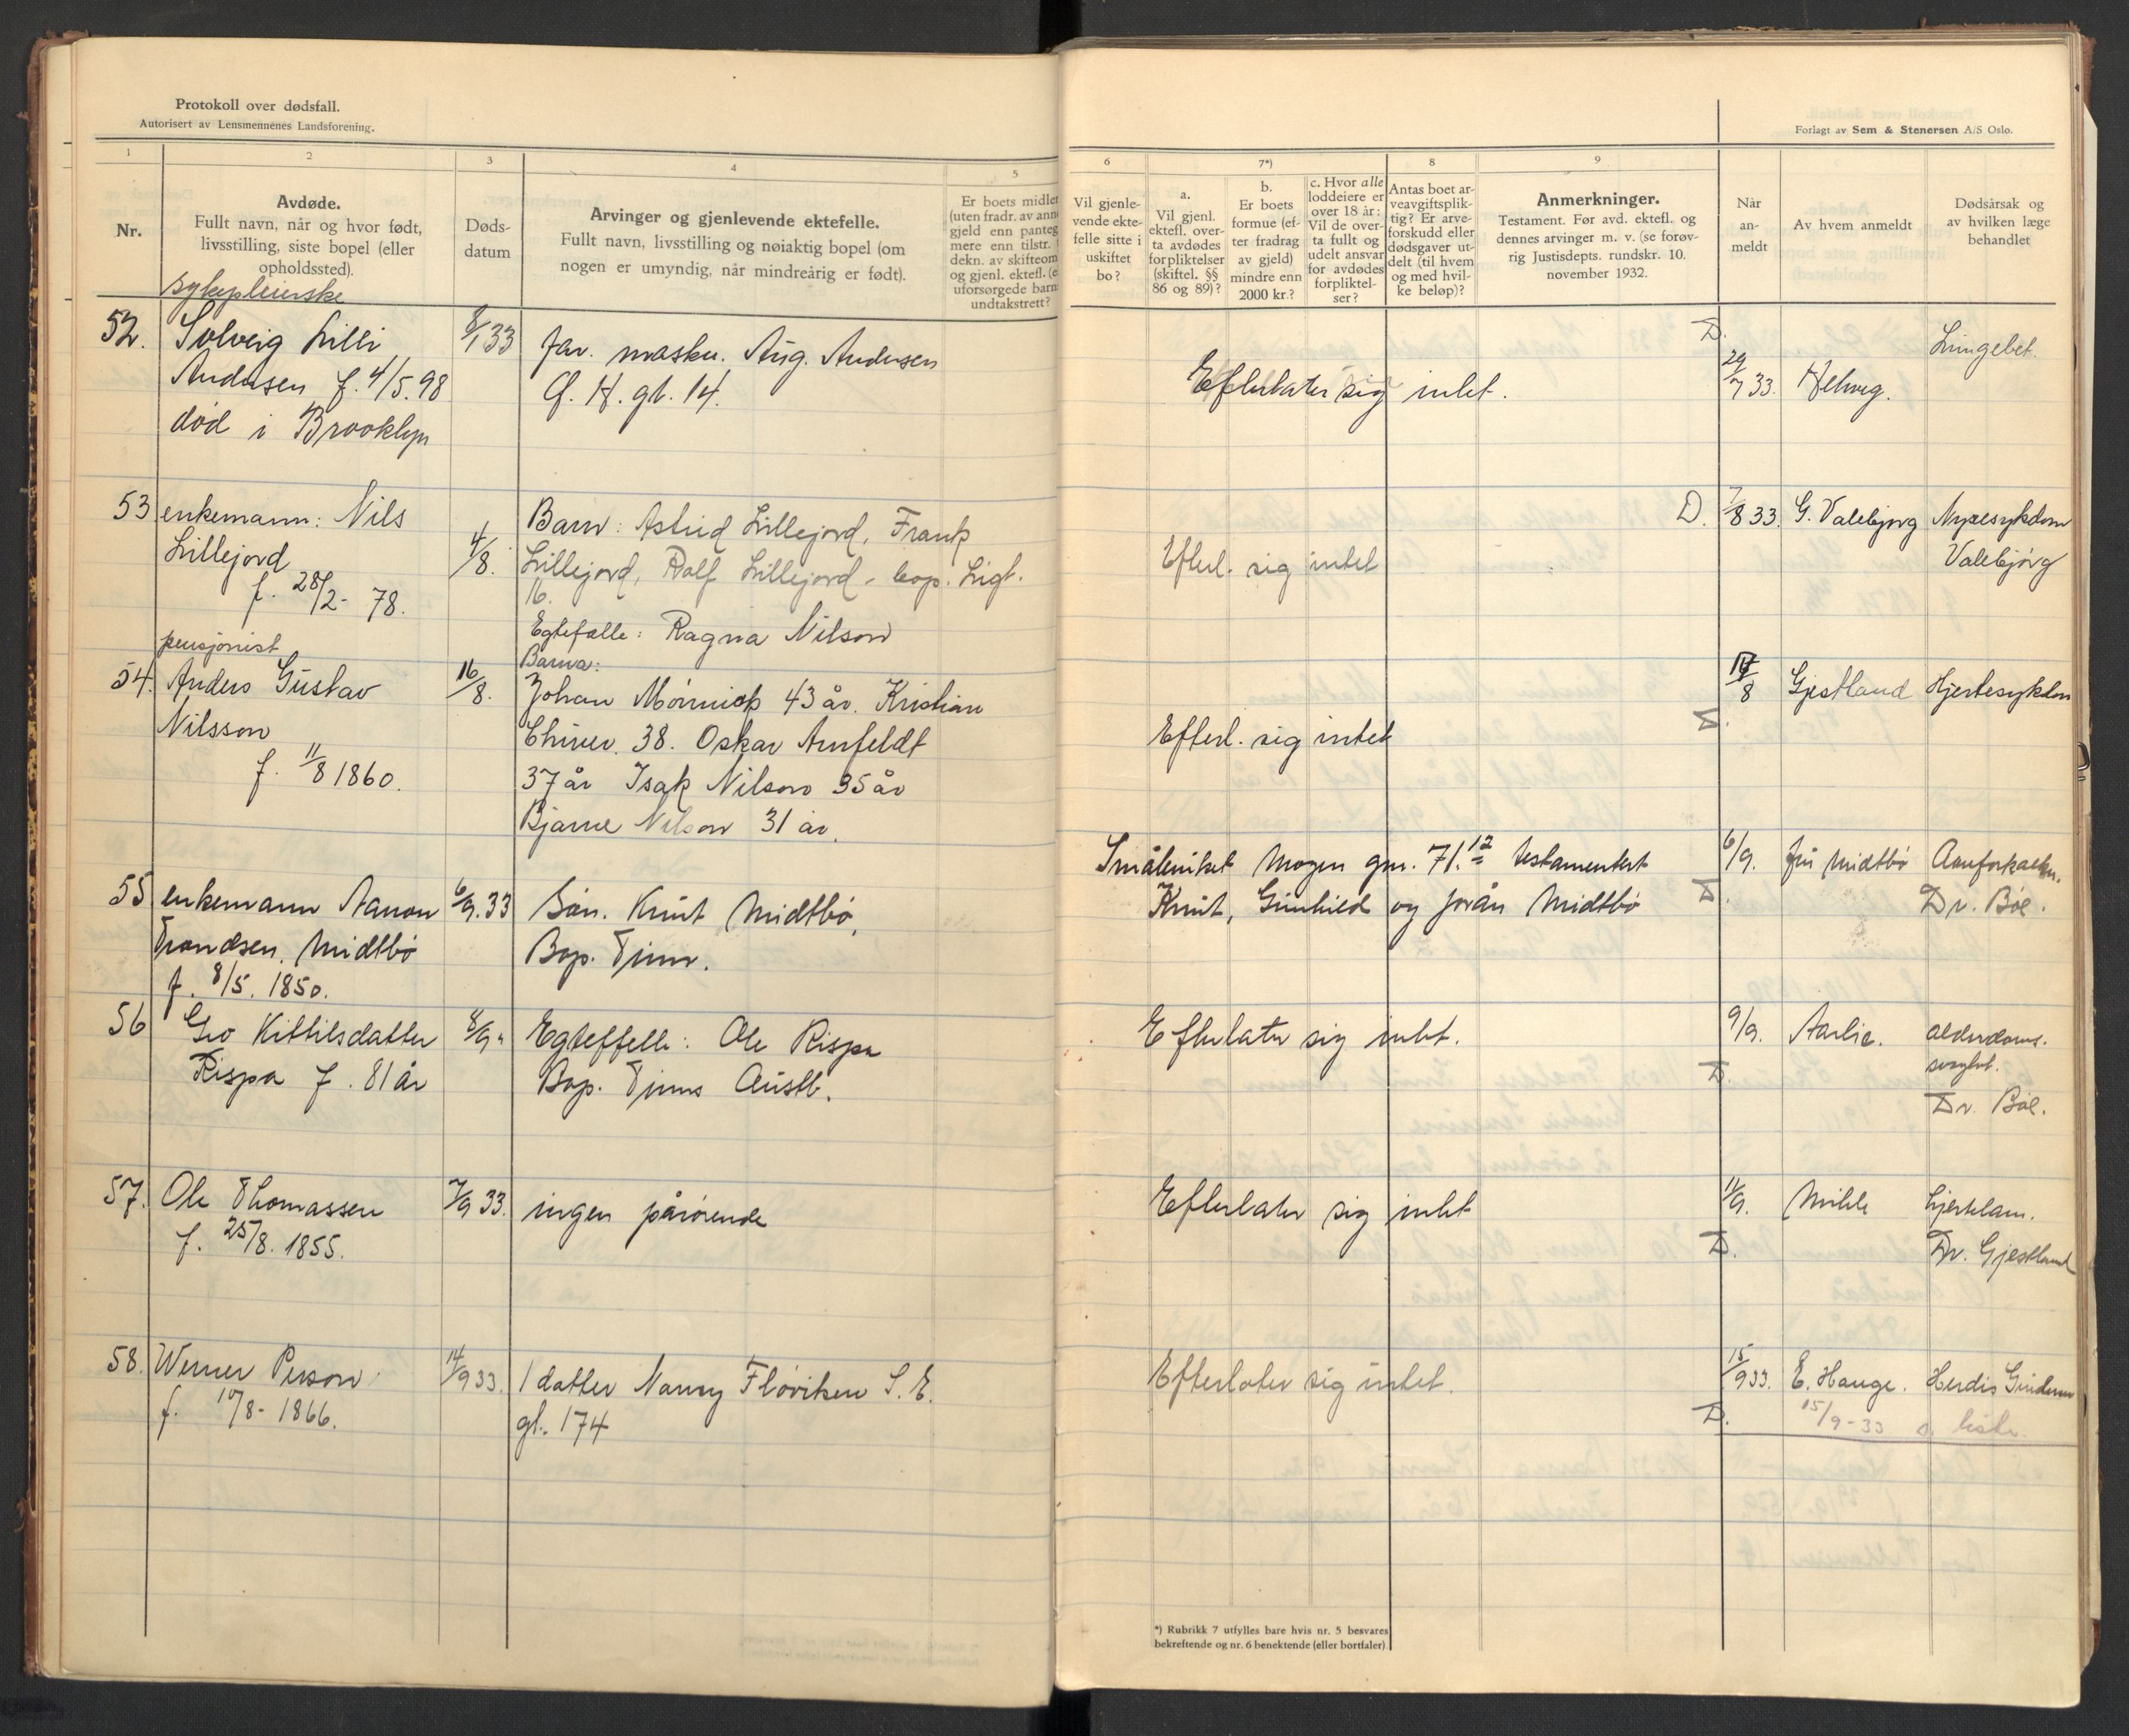 Protokoll over dødsfall.
Autorisert av Lensmennenes Landsforening.
Forlagt av Sem & Stenersen A/S Oslo.
1
2
3
4
5
6
7*)
8
9
Nr.
Avdøde.
Fullt navn, når og hvor født,
livsstilling, siste bopel (eller
opholdssted).
Døds-
datum
Arvinger og gjenlevende ektefelle.
Fullt navn, livsstilling og nøiaktig bopel (om
nogen er umyndig, når mindreårig er født).
Er boets midler
(uten fradr. av ann
gjeld enn panteg
mere enn tilstr.
dekn. av skifteom
og gjenl. ektefl. (e
uforsørgede barn
undtakstrett?
Vil gjenle-
vende ekte-
felle sitte i
uskiftet
bo?
a.
Vil gjenl.
ektefl. over-
ta avdødes
forpliktelser
(skiftel. §§
86 og 89)?
b.
Er boets
formue (ef-
ter fradrag
av gjeld)
mindre enn
2000 kr.?
c. Hvor alle
loddeiere er
over 18 år:
Vil de over-
ta fullt og
udelt ansvar
for avdødes
forpliktel-
ser?
Antas boet ar-
veavgiftsplik-
tig? Er arve-
forskudd eller
dødsgaver ut-
delt (til hvem
og med hvil-
ke beløp)?
Anmerkninger.
Testament. Før avd. ektefl. og
dennes arvinger m. v. (se forøv-
rig Justisdepts. rundskr. 10.
november 1932.
Når
an-
meldt
Av hvem anmeldt
Dødsårsak og
av hvilken læge
behandlet
sykepleierske
52. Solveig Lilli
Andersen f. 4/5.98
død i Brooklyn
8/1 33
far. mask. Aug. Andersen
H. gt. 14.
Efterlater sig intet.
D.
29/7 33. Helweg.
Lungebet.
53 enkemann: Nils
Lillejord
f. 28/2- 78.
4/8.
Barn: Astrid Lillejord, Frank
Lillejord, Rolf Lillejord - bop. Ligt.
16.
Efterl. sig intet
D. 7/8 33. G. Valebjørg Nyresykdom
Valebjørg
pensjonist
54. Anders Gustav
Nilsson
f. 11/8 1860.
16/8.
Egtefelle: Ragna Nilson
Barna:
Johan Mørnick 43 år. Kristian
38. Oskar Armfeldt
37 år Isak Nilson 35 år
Bjarne Nilson 31 år.
Efterl. sig intet
17/8 Gjestland Hjertesykdom
D.
55 enkemann Aanon
Trondsen. Midtbø
f. 8/5. 1850.
6/9.33
Søn. Knut Midtbø,
Bop. Tinn.
Småbruket Mogen gnr. 71. 12 testamentert
Knut, Gunhild og Jorån Midtbø
D.
6/9. fru Midtbø Aareforkalkn.
Dr. Bøe.
56 Gro Kittilsdatter
Rispa f. 81 år
8/9.
Egteffelle: Ole Rispa
Bop. Tinns Austb.
Efterlater sig intet.
D.
9/9. Aarlie. alderdoms.
svaghet.
Dr. Bøe.
57. Ole Thomassen
f. 25/8. 1855.
7/9 33.
ingen pårørende
Efterlater sig intet
D.
11/9. Milde hjertelam.
Dr. Gjestland
58. Werner Person
f. 17/8- 1866.
14/9 33.
1 datter Nanny Fløviken S. E.
gt. 174
Efterlater sig intet.
D.
15/9 33. E. Hauge. Herdis Gundersen
15/9-33 s. liste
*) Rubrikk 7 utfylles bare hvis nr. 5 besvares
bekreftende og nr. 6 benektende (eller bortfaler)